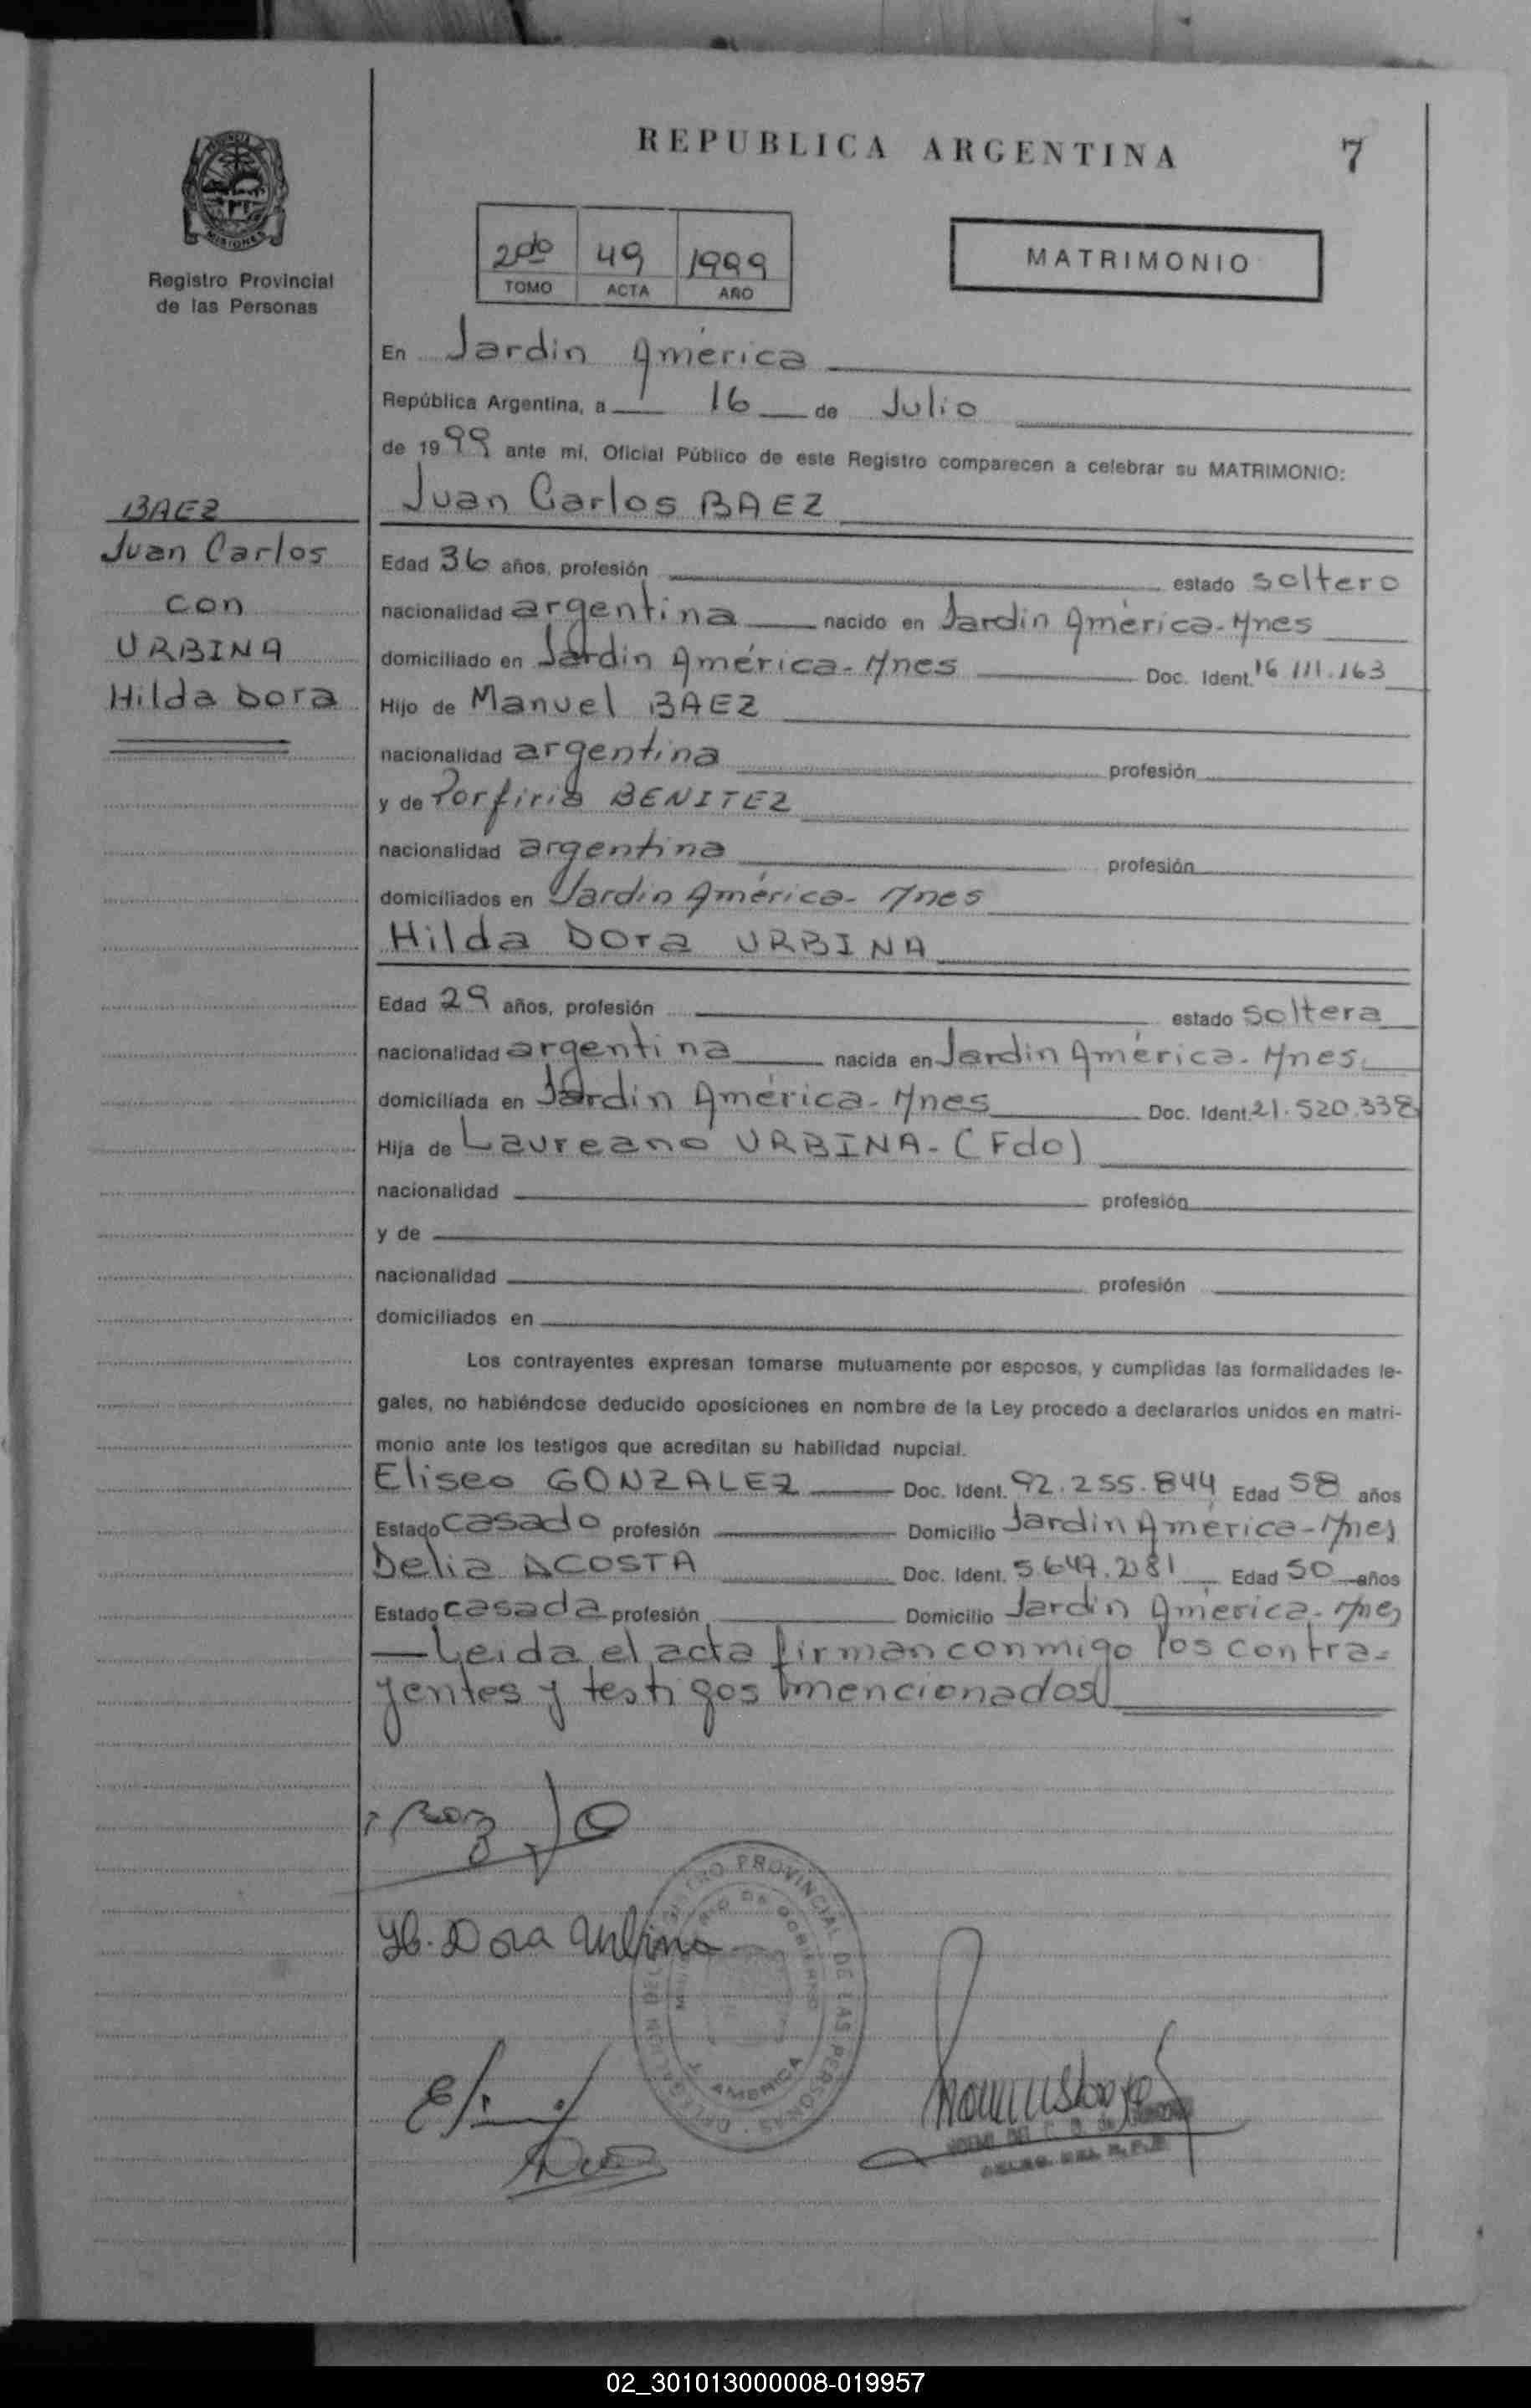 REPUBLICA ARGENTINA
7
PROVINCIA DE
MISIONES
Registro Provincial
de las Personas
2do 49 1999
TOMO ACTA AÑO
MATRIMONIO
En Jardin América
República Argentina, a 16 de Julio
de 1999 ante mí, Oficial Público de este Registro comparecen a celebrar su MATRIMONIO:
Juan Carlos BAEZ
BAEZ
Juan Carlos
con
URBINA
Hilda Dora
Edad 36 años, profesión estado soltero
nacionalidad argentina nacido en Jardin América-Mnes
domiciliado en Jardin América-Mnes Doc. Ident. 16 111.163
Hijo de Manuel BAEZ
nacionalidad argentina profesión
y de Porfiria BENITEZ
nacionalidad argentina profesión
domiciliados en Jardin América-Mnes
Hilda Dora URBINA
Edad 29 años, profesión estado soltera
nacionalidad argentina nacida en Jardin América-Mnes
domiciliada en Jardin América-Mnes Doc. Ident. 21.520.338
Hija de Laureano URBINA-(Fdo)
nacionalidad profesión
y de
nacionalidad profesión
domiciliados en
Los contrayentes expresan tomarse mutuamente por esposos, y cumplidas las formalidades le-
gales, no habiéndose deducido oposiciones en nombre de la Ley procedo a declararlos unidos en matri-
monio ante los testigos que acreditan su habilidad nupcial.
Eliseo GONZALEZ Doc. Ident. 92.255.844 Edad 58 años
Estado casado profesión Domicilio Jardin América-Mnes
Delia ACOSTA Doc. Ident. 5 647.281 Edad 50 años
Estado casada profesión Domicilio Jardin América-Mnes
Leida el acta firman conmigo los contra-
yentes y testigos mencionados
H. Dora Urbina
REGISTRO PROVINCIAL DE LAS PERSONAS - DELEGACION
MINISTERIO DE GOBIERNO
J. AMERICA
02_301013000008-019957